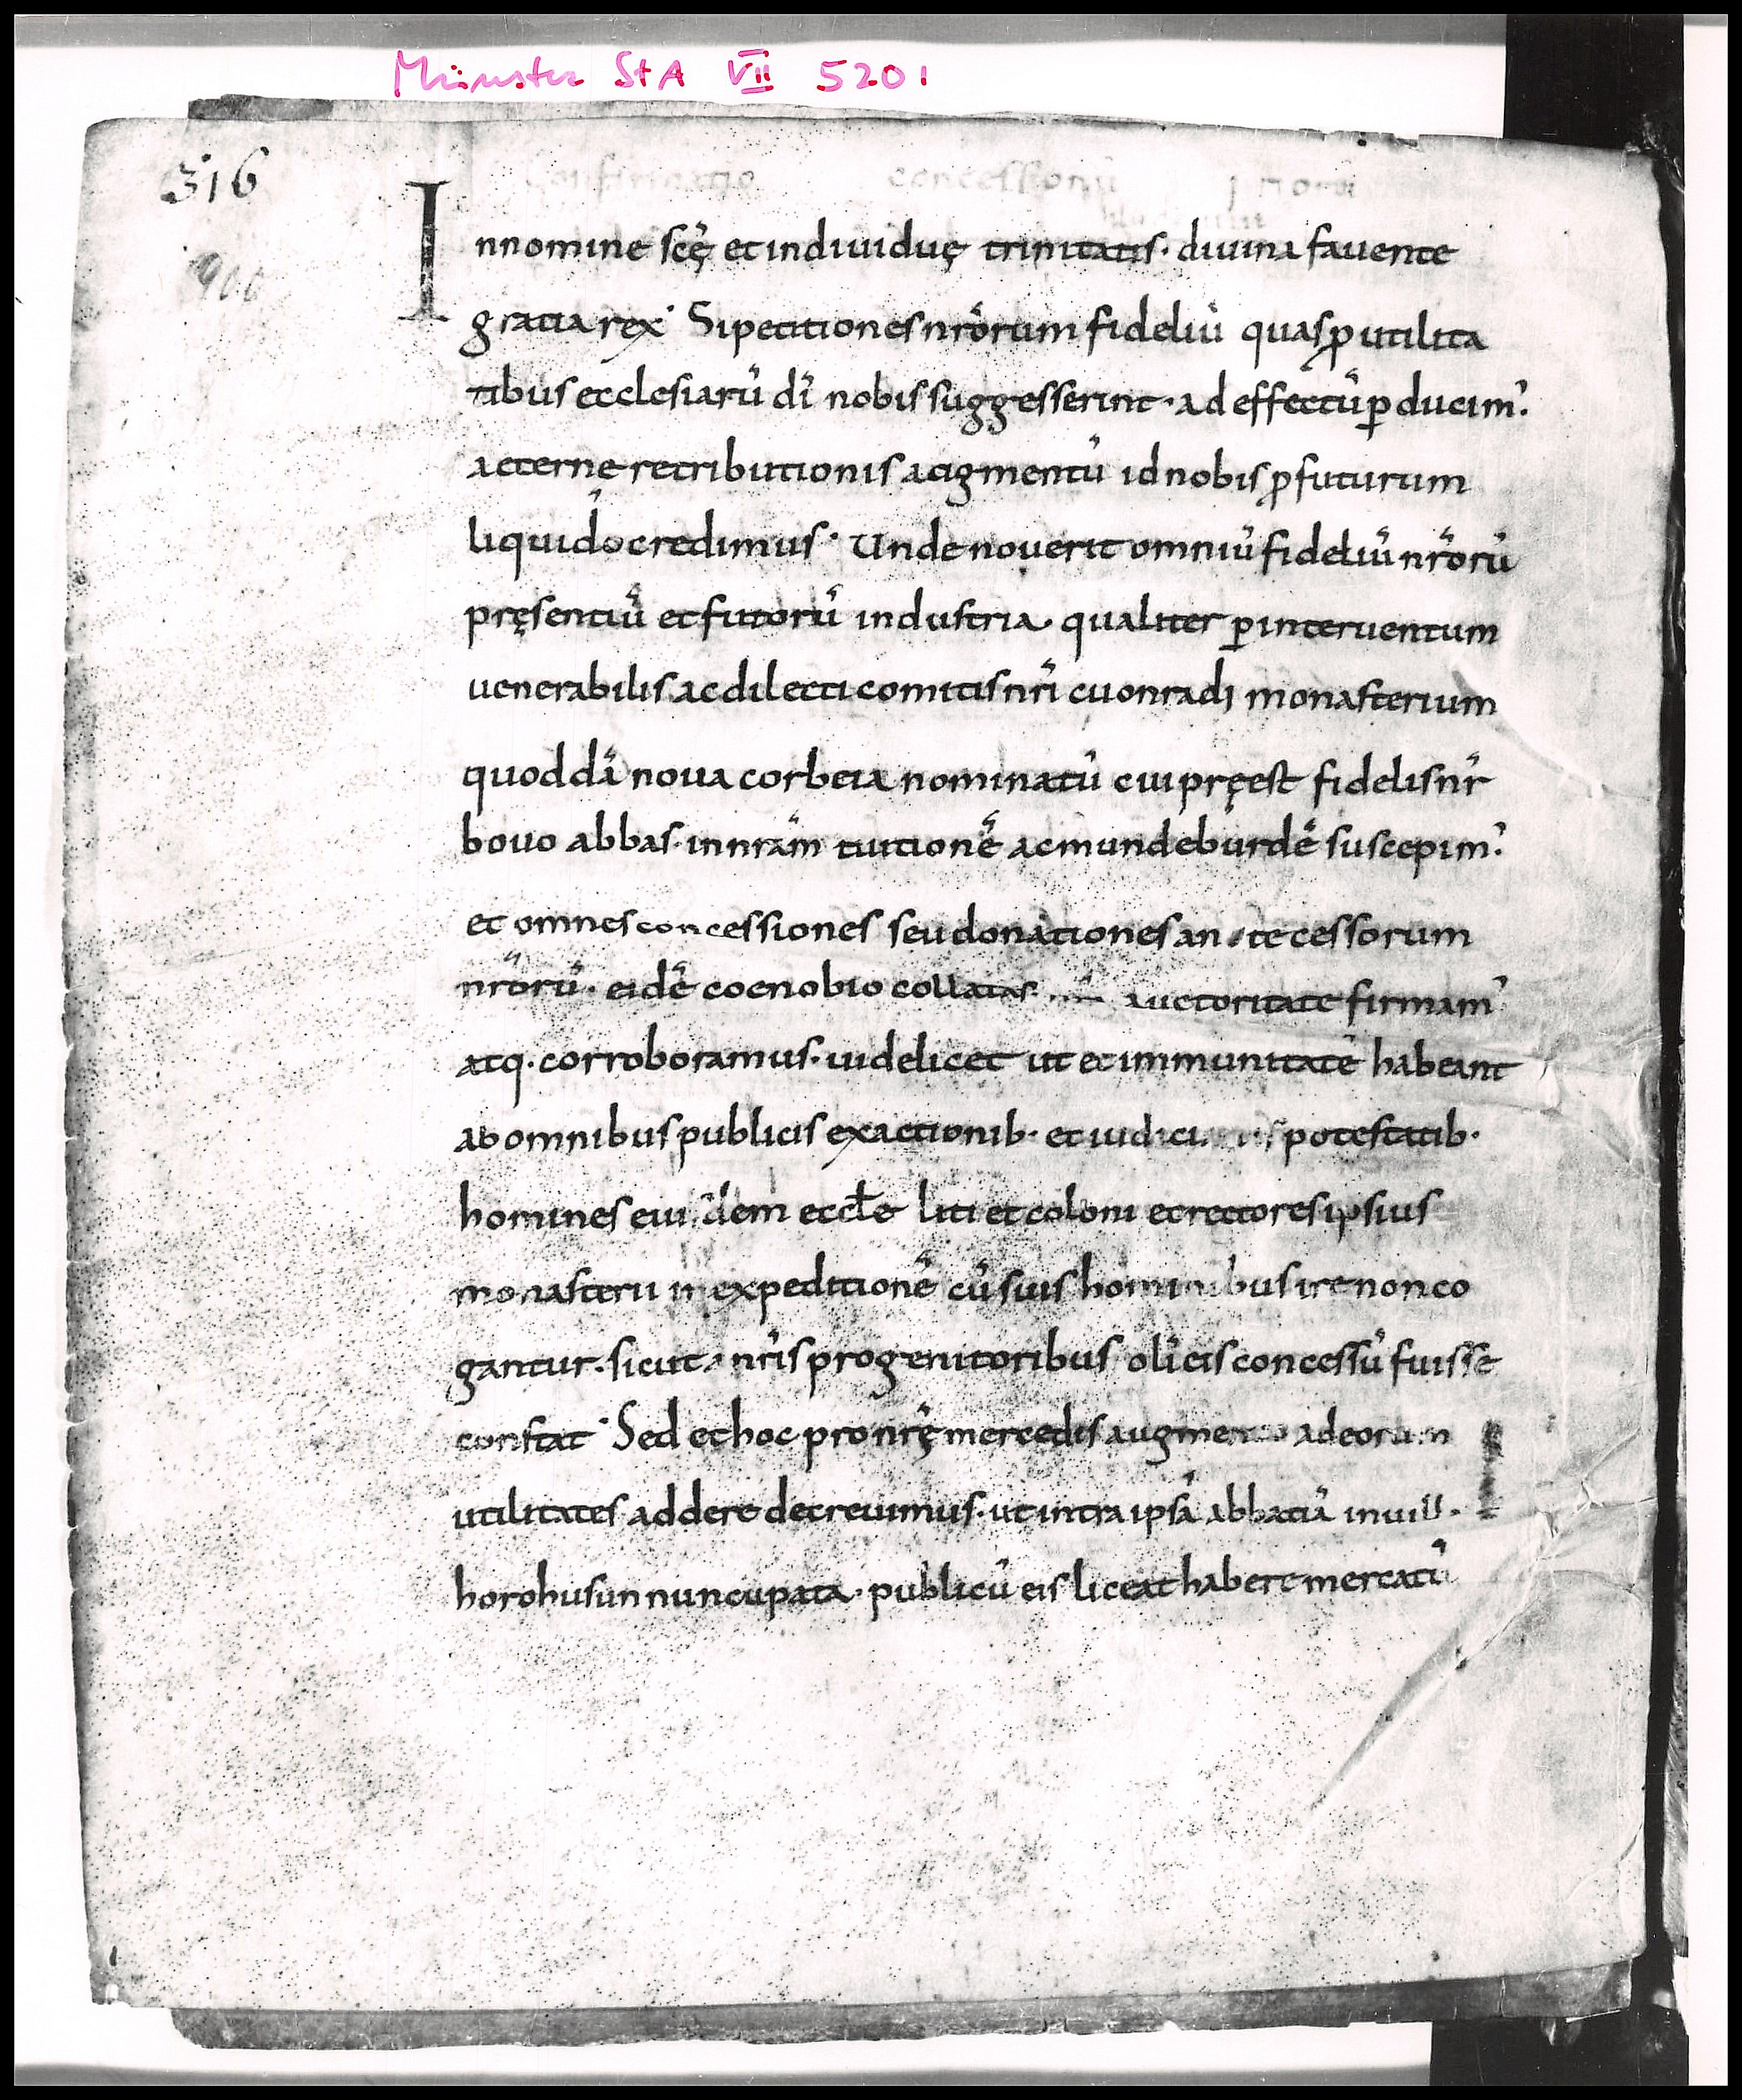 Münster StA VII 5201
316
900
Confirmatio concessionū priorū
Innomine scę̄ et indiuiduę trinitatis· diuina fauente
gratia rex· Si petitiones nrōrum fideliū quas ꝓ utilita
tibus ecclesiarū dī nobis suggesserint· ad effectū ꝑducim᾽.
aeterne retributionis augmentū id nobis ꝓfuturum
liquido credimus· Unde nouerit omniū fideliū nrōrū
pręsentiū et futorū industria· qualiter ꝑ interuentum
uenerabilis ac dilecti comitis nrī cuonradi monasterium
quoddā noua corbeia nominatū cui pręest fidelis nr̄
bouo abbas· in nrām tuitionē ac mundeburdē suscepim᾽.
et omnes concessiones seu donationes antecessorum
nrōrū· eidē coenobio collatas auctoritate firmam᾽
atq· corroboramus· uidelicet ut et immunitatē habeant
ab omnibus publicis exactionib· et potestatib·
homines eiusdem eccłe liti et coloni et rectores ipsius
monasterii in expeditionē cū suis hominibus ire non co
gantur· sicut a nrīs progenitoribus olī eis concessū fuisse
constat· Sed et hoc pro nrę̄ mercedis augmento ad eorum
utilitates addere decreuimus· ut intra ipsā abbatiā in uill·
horohusun nuncupata· publicū eis liceat habere mercatū